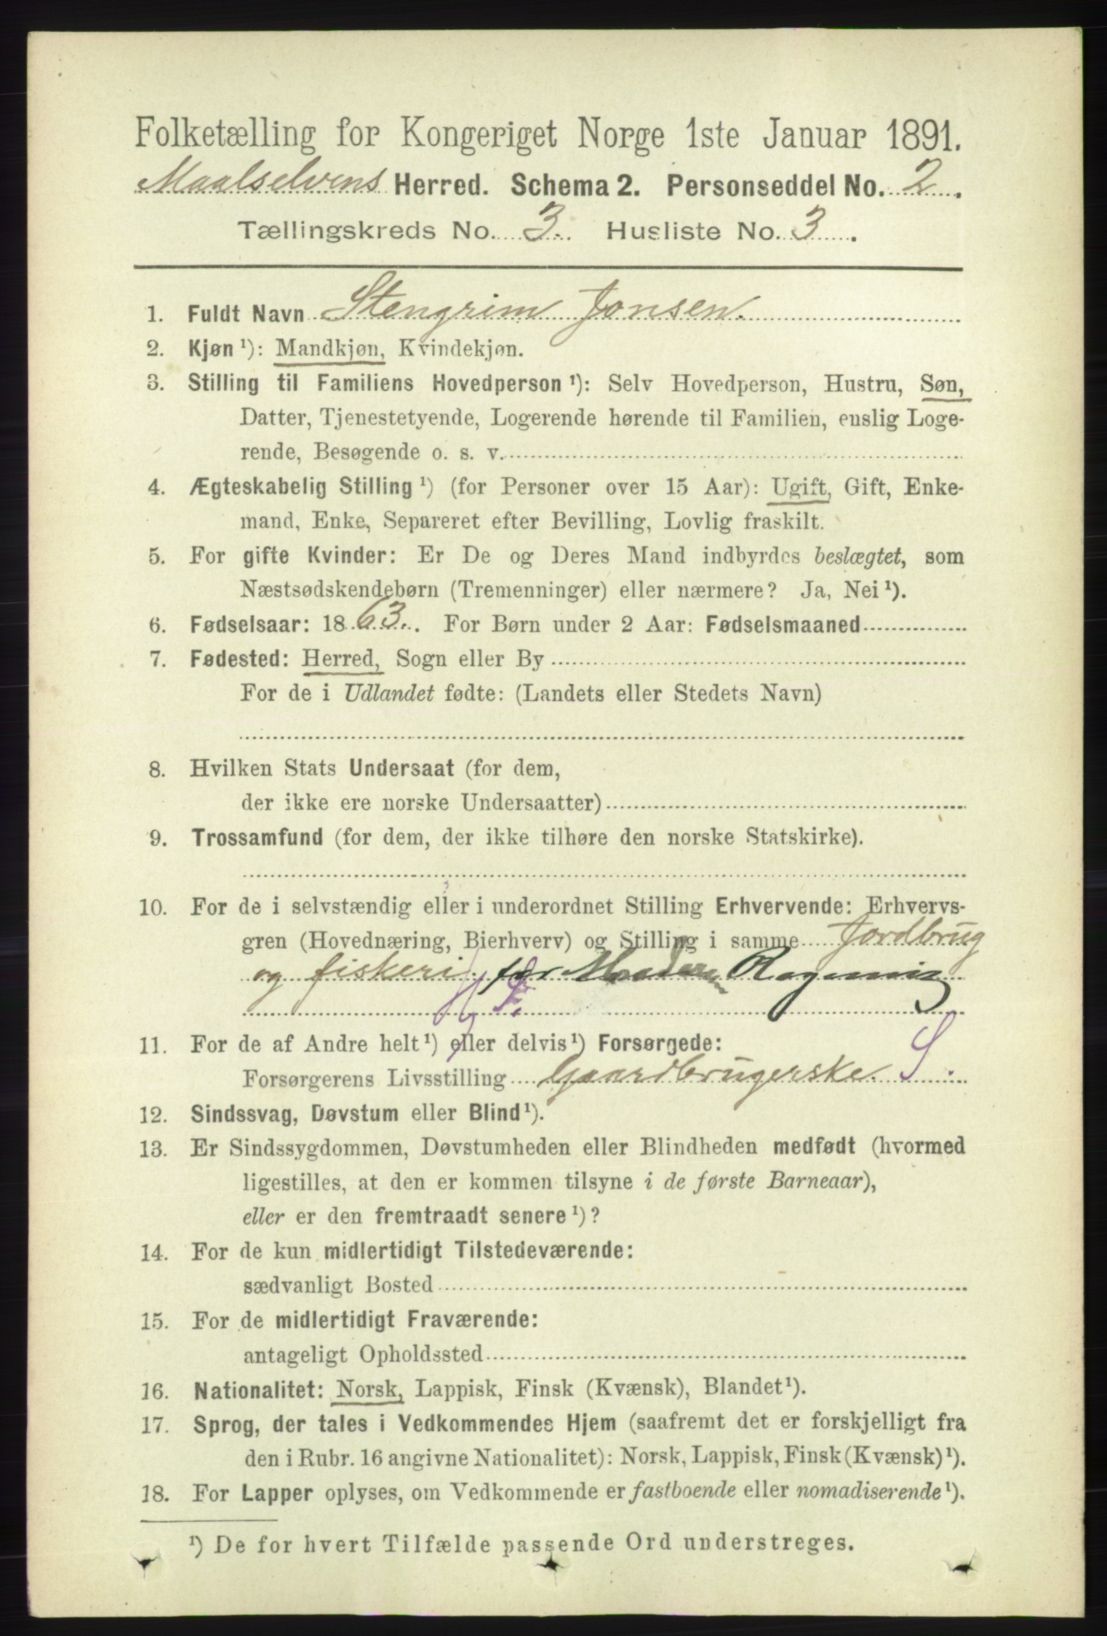 Folketælling for Kongeriget Norge 1ste Januar 1891.
Maalselvens Herred. Schema 2. Personseddel No. 2.
Tællingskreds No. 3. Husliste No. 3.
1. Fuldt Navn Stengrim Jonsen.
2. Kjøn ¹): Mandkjøn, Kvindekjøn.
3. Stilling til Familiens Hovedperson ¹): Selv Hovedperson, Hustru, Søn,
Datter, Tjenestetyende, Logerende hørende til Familien, enslig Loge-
rende, Besøgende o. s. v.
4. Ægteskabelig Stilling ¹) (for Personer over 15 Aar): Ugift, Gift, Enke-
mand, Enke, Separeret efter Bevilling, Lovlig fraskilt.
5. For gifte Kvinder: Er De og Deres Mand indbyrdes beslægtet, som
Næstsødskendebørn (Tremenninger) eller nærmere? Ja, Nei ¹).
6. Fødselsaar: 1863. For Børn under 2 Aar: Fødselsmaaned
7. Fødested: Herred, Sogn eller By
For de i Udlandet fødte: (Landets eller Stedets Navn)
8. Hvilken Stats Undersaat (for dem,
der ikke ere norske Undersaatter)
9. Trossamfund (for dem, der ikke tilhøre den norske Statskirke).
10. For de i selvstændig eller i underordnet Stilling Erhvervende: Erhvervs-
gren (Hovednæring, Bierhverv) og Stilling i samme Jordbrug
og fiskeri for Moderen
11. For de af Andre helt ¹) eller delvis ¹) Forsørgede:
Forsørgerens Livsstilling Gaardbrugerske. S.
12. Sindssvag, Døvstum eller Blind ¹).
13. Er Sindssygdommen, Døvstumheden eller Blindheden medfødt (hvormed
ligestilles, at den er kommen tilsyne i de første Barneaar),
eller er den fremtraadt senere ¹)?
14. For de kun midlertidigt Tilstedeværende:
sædvanligt Bosted
15. For de midlertidigt Fraværende:
antageligt Opholdssted
16. Nationalitet: Norsk, Lappisk, Finsk (Kvænsk), Blandet ¹).
17. Sprog, der tales i Vedkommendes Hjem (saafremt det er forskjelligt fra
den i Rubr. 16 angivne Nationalitet): Norsk, Lappisk, Finsk (Kvænsk) ¹).
18. For Lapper oplyses, om Vedkommende er fastboende eller nomadiserende ¹).
¹) De for hvert Tilfælde passende Ord understreges.